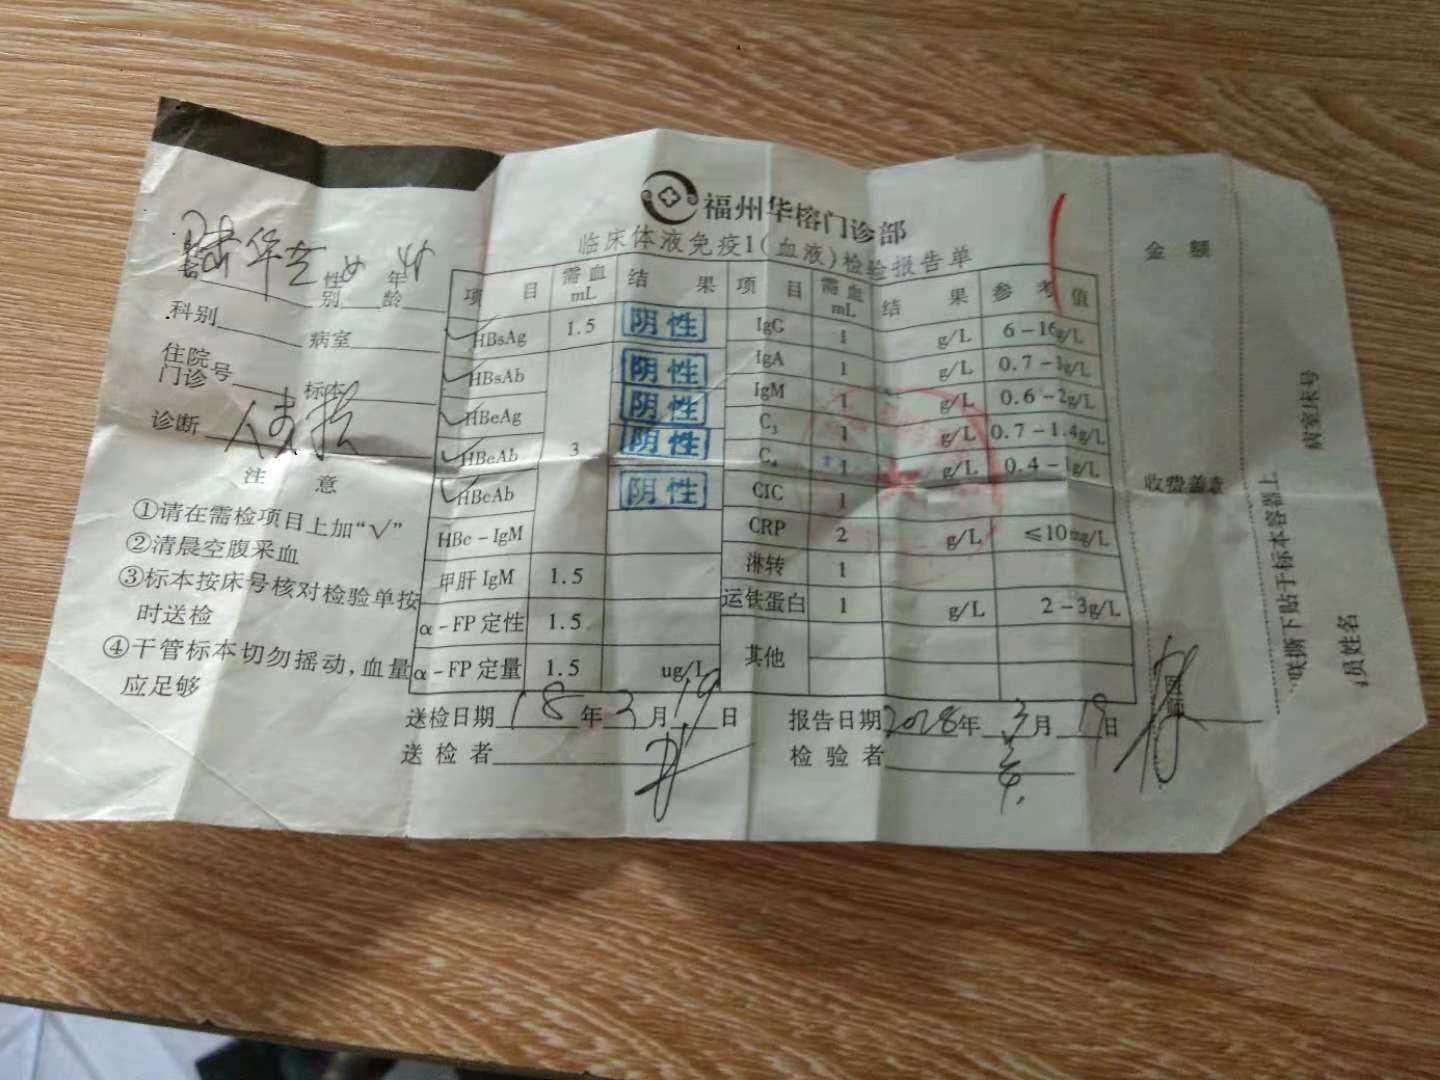 福州华榕门诊部
临床体液免疫1(血液)检验报告单
华 性别 女 年龄
科别 病室
住院门诊号 标本
诊断
注 意
①请在需检项目上加“√”
②清晨空腹采血
③标本按床号核对检验单按
时送检
④干管标本切勿摇动,血量
应足够
项 目 需血mL 结 果 项 目 需血mL 结 果 参 考 值
√ HBsAg 1.5 阴性 IgG 1 g/L 6-16g/L
√ HBsAb 阴性 IgA 1 g/L 0.7-3g/L
√ HBeAg 阴性 IgM 1 g/L 0.6-2g/L
√ HBeAb 3 阴性 C3 1 g/L 0.7-1.4g/L
√ HBcAb 阴性 C4 1 g/L 0.4-1g/L
HBc-IgM CIC 1
甲肝 IgM 1.5 CRP 2 g/L ≤10mg/L
α-FP 定性 1.5 淋转 1
α-FP 定量 1.5 ug/L 运铁蛋白 1 g/L 2-3g/L
其他
送检日期 18 年 3 月 19 日 报告日期 2018 年 3 月 19 日
送检者 检验者
金 额
收费盖章
医师
联撕下贴于标本容器上
病室床号
员姓名